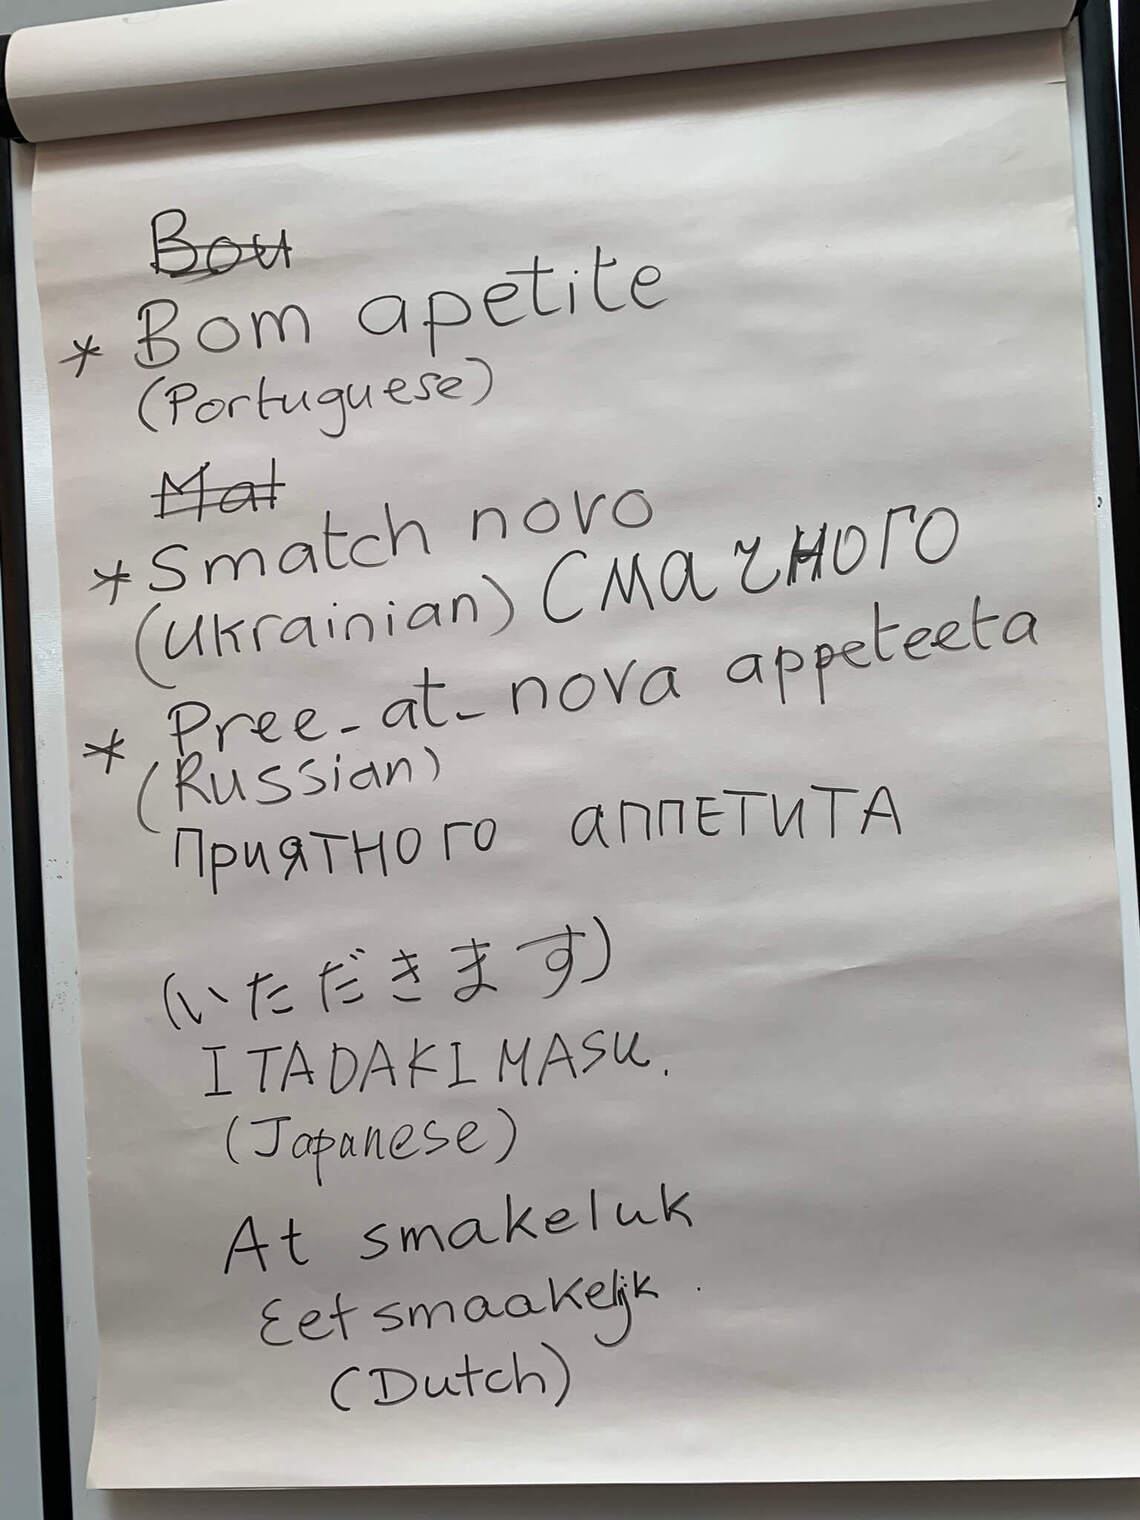 Bou
* Bom apetite
(Portuguese)
Mat
* Smatch novo
(Ukrainian) Смачного
* Pree-at-nova appeteeta
(Russian)
Приятного аппетита
(いただきます)
ITADAKIMASU.
(Japanese)
At smakeluk
Eet smaakelijk.
(Dutch)